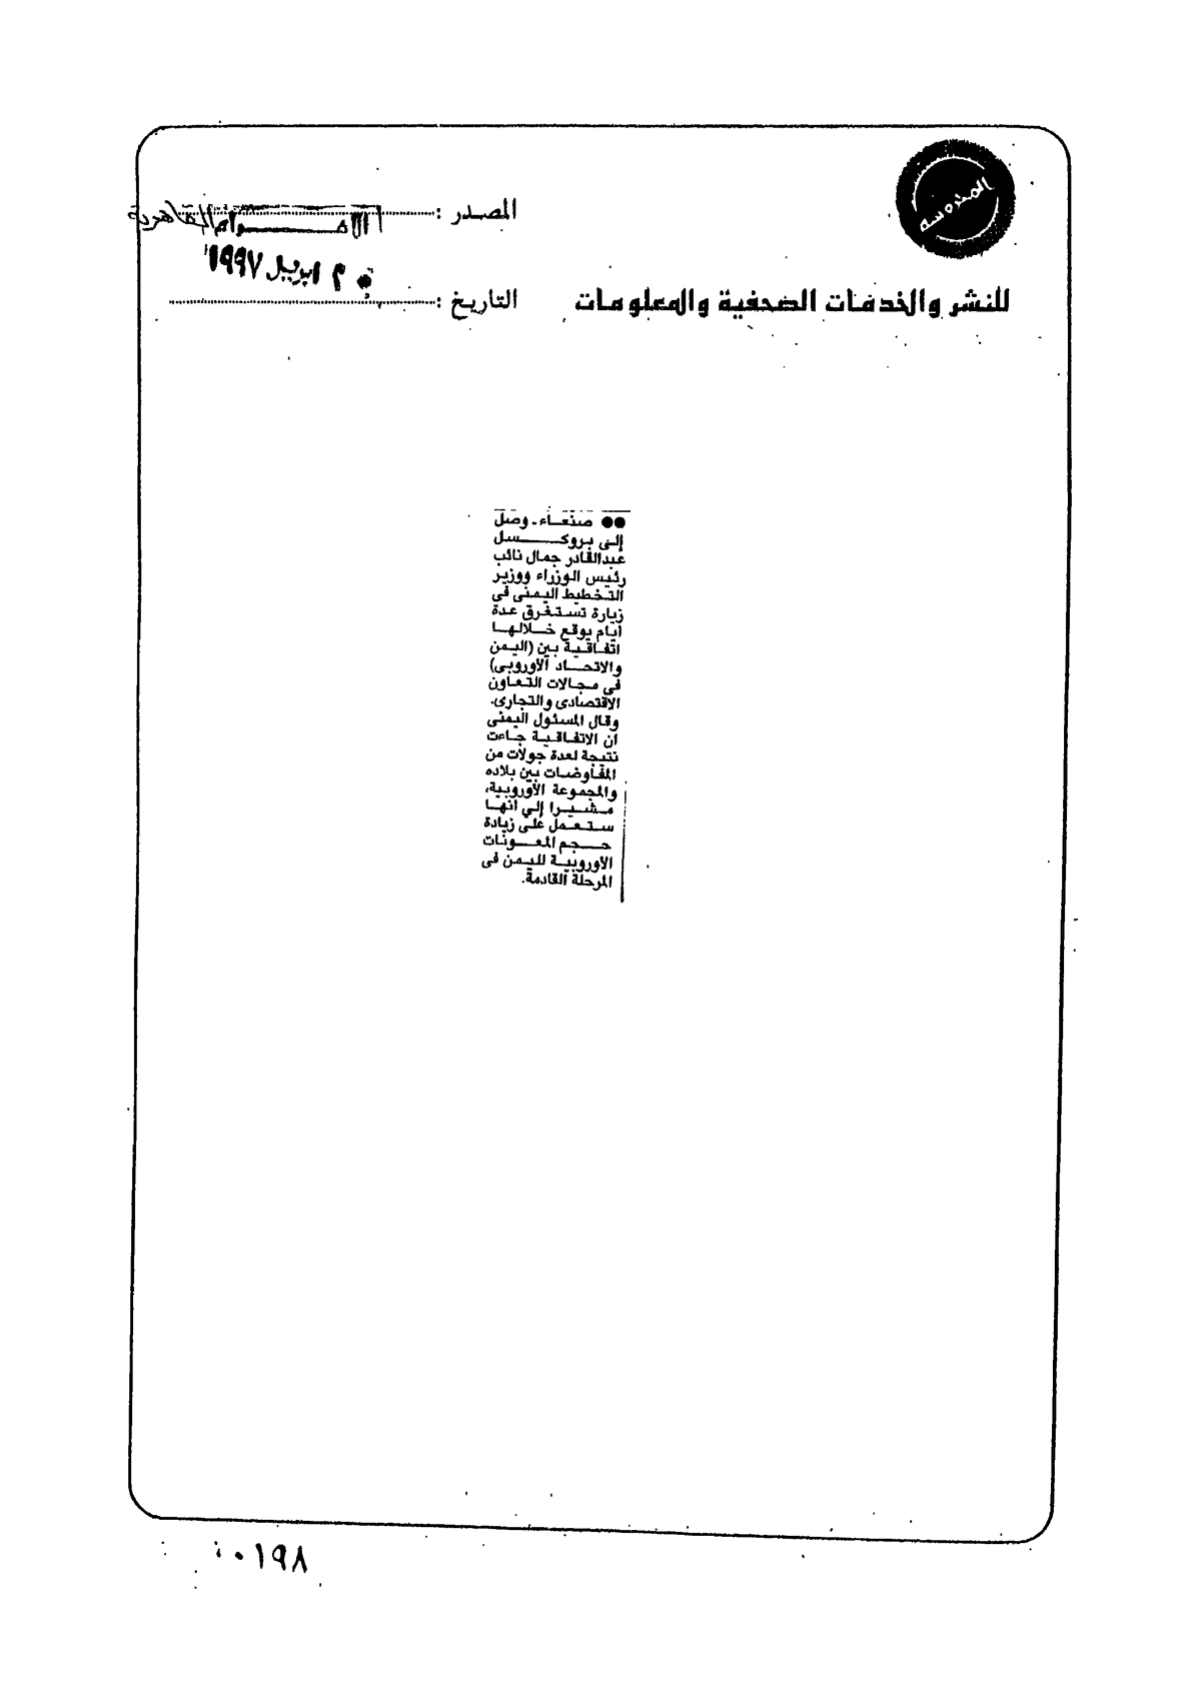 المصدر : الاهرام القاهرية
ابريل ١٩٩٧
للنشر والخدمات الصحفية والمعلومات
التاريخ :
●● صنعاء ـ وصل
إلى بروكسل
عبدالقادر جمال نائب
رئيس الوزراء ووزير
التخطيط اليمنى فى
زيارة تستغرق عدة
أيام يوقع خلالها
اتفاقية بين (اليمن
والاتحاد الأوروبى)
فى مجالات التعاون
الاقتصادى والتجارى.
وقال المسئول اليمنى
ان الاتفاقية جاءت
نتيجة لعدة جولات من
المفاوضات بين بلاده
والمجموعة الأوروبية،
مشيرا إلى أنها
ستعمل على زيادة
حجم المعونات
الأوروبية لليمن فى
المرحلة القادمة.
٠١٩٨